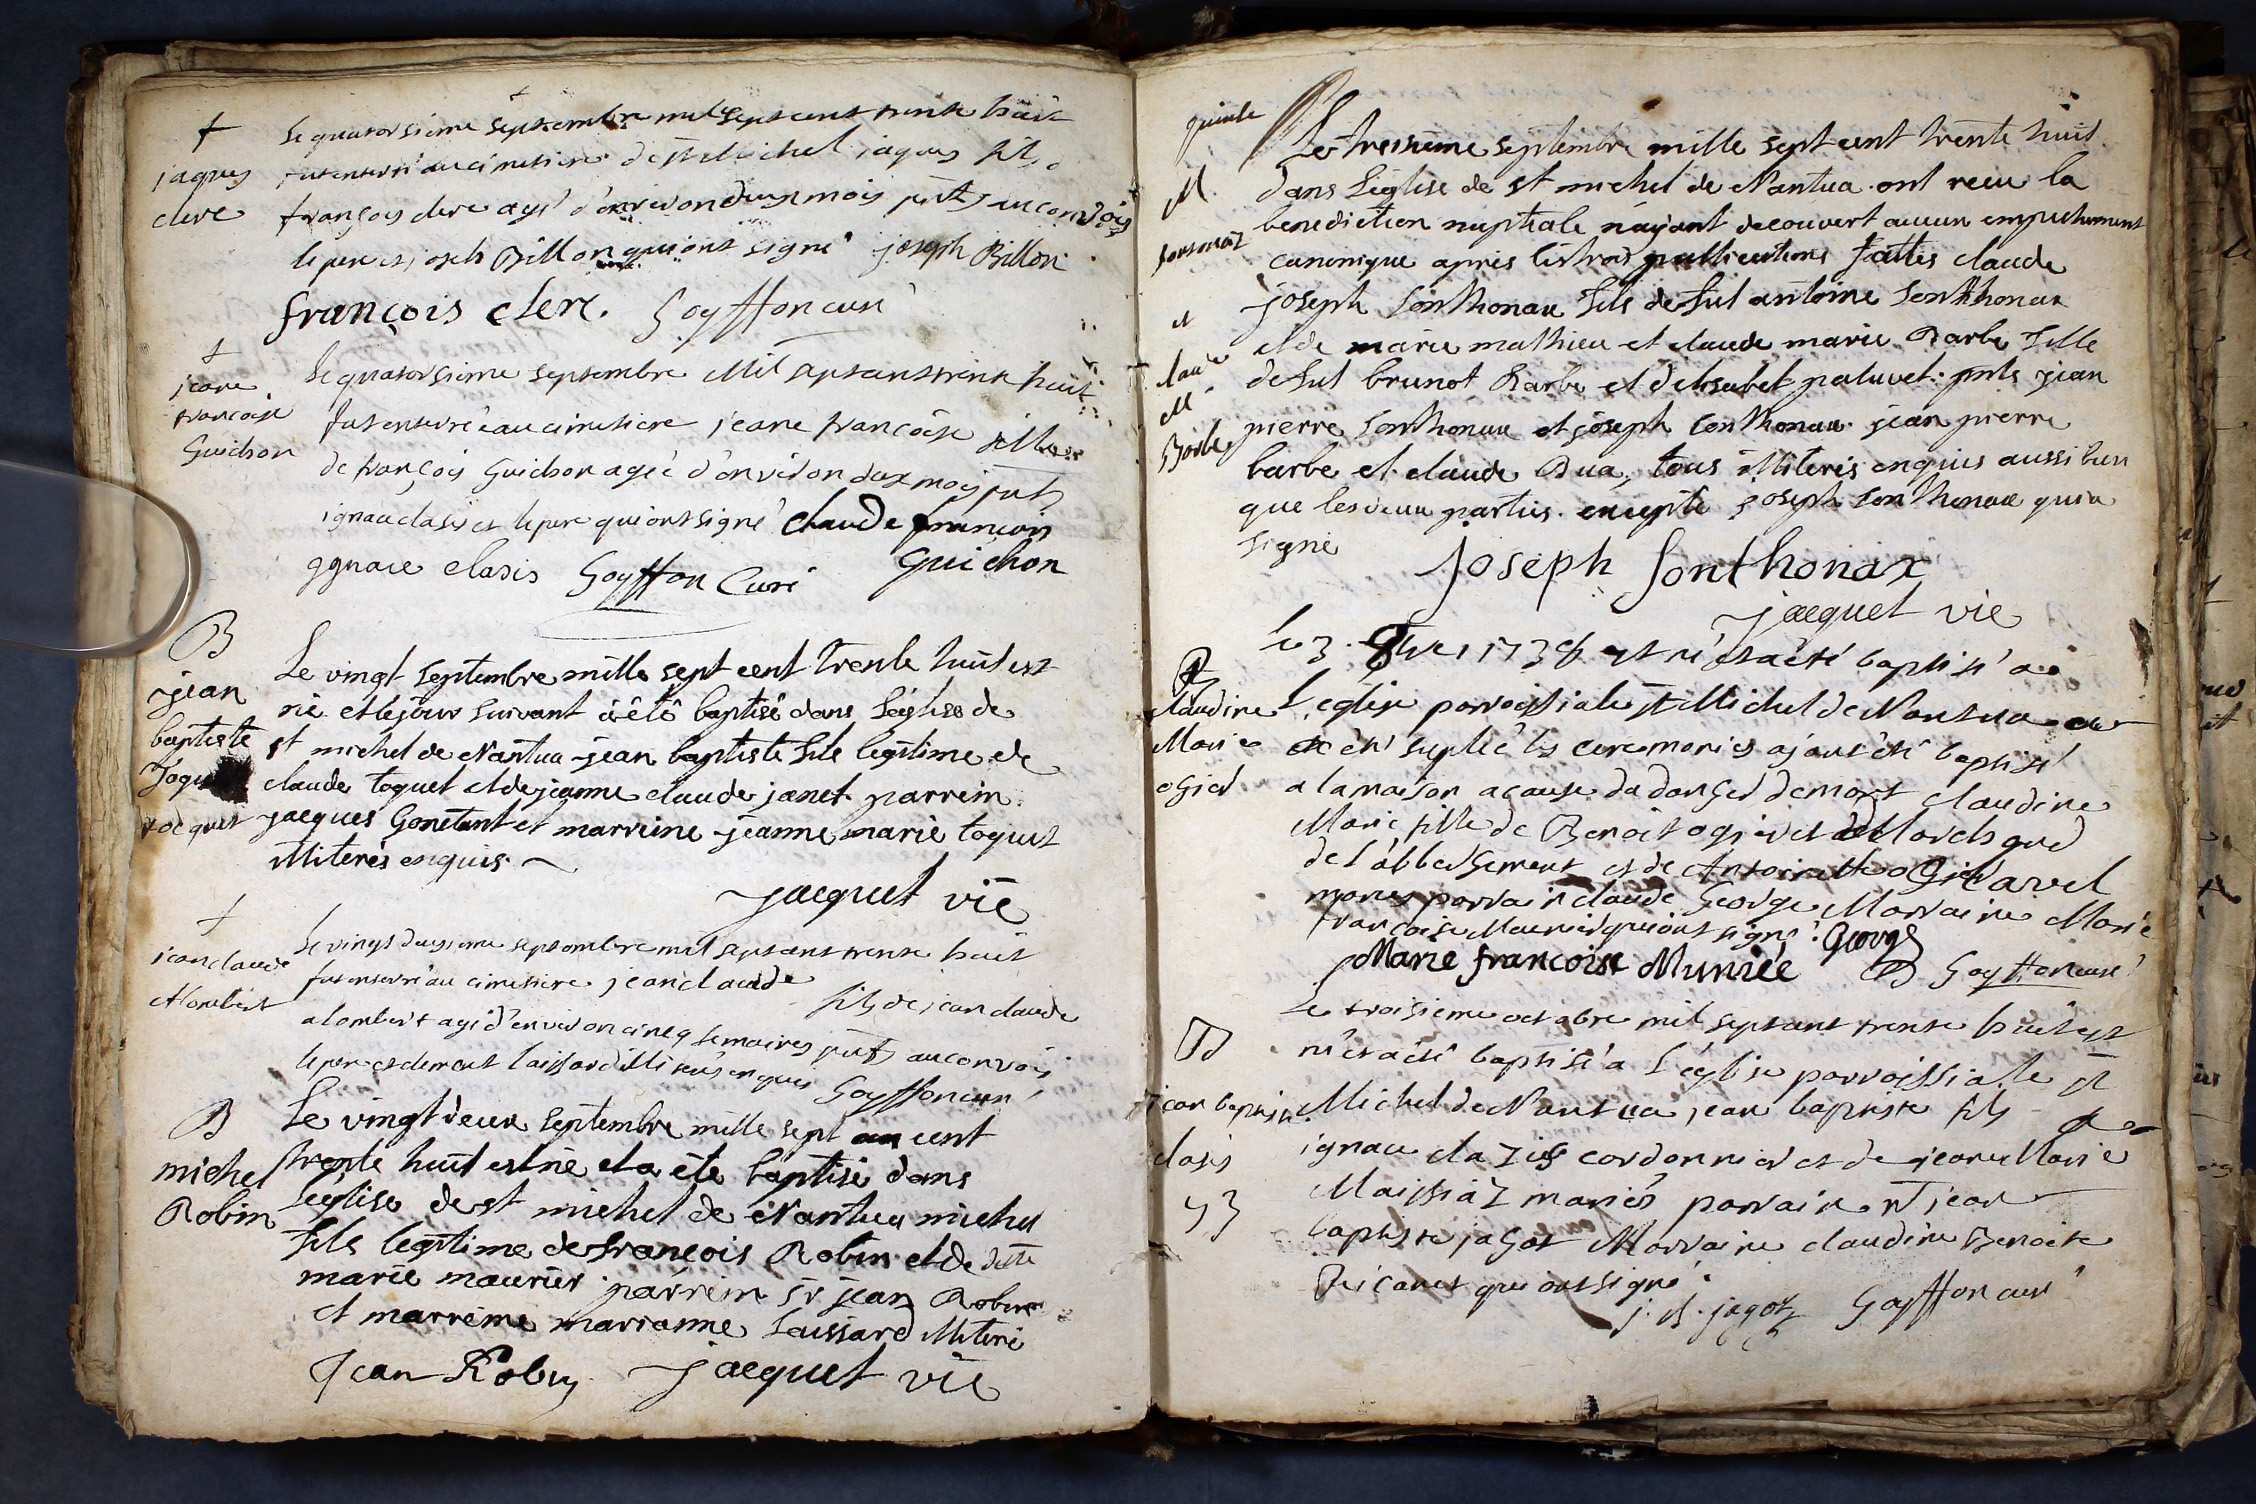 †
jaques
clerc
Le quatorsieme septembre mil sept cent trente huit
fut enterré au cimetiere de st Michel jaques fils
françois clerc agé d'environ deux mois pnts au convois
le pere et joseh Billon qui ont signé joseph Billon
françois clerc. Goyffon curé
†
jeane
francoise
Guichon
Le quatorsieme septembre Mil septcent trente huit
fut enterrée au cimetiere jeane francoise fille
de françois Guichon agée d'environ deux mois pnts
ignace clasis et le pere qui ont signé claude francois
ygnace clasis Goyffon Curé guichon
B
jean
baptiste
Toquet
tocquet
Le vingt septembre mille sept cent trente huit est
né et le jour suivant a été baptisé dans L'église de
st michel de Nantua jean baptiste fils legitime de
claude toquet et de jeanne claude janet parrein
jacques Gonetant et marreine jeanne marie toquet
illiterés enquis.
jacquet vic
†
jean claude
Alombert
Le vingt deusieme septembre mil septcent trente huit
fut enterré au cimetiere jean claude
fils de jean claude
alombert agé d'environ cineq semaines pnts au convois
le pere et clement laissard illiterés enquis Goyffon curé
B
michel
Robin
Le vingt deux septembre mille sept cent
trente huit est né et a éte baptisé dans
L'église de st michel de Nantua michel
fils legitime de francois Robin et de dlle
marie maurier parrein sr jean Robin
et marreine marianne Laissard illiteré
Jean Robin jacquet vic
M.
sontonaz
et
claude
M.
Barbe
Le treisieme septembre mille sept cent trente huit
dans L'église de st michel de Nantua ont recu la
benediction nuptiale n'ayant decouvert aucun empechement
canonique apres les trois publications faittes claude
joseph sonthonax fils de fut antoine sonthonax
et de marie mathieu et claude marie Barbe fille
de fut brunot Barbe et d'elisabet paluvet. pnts jean
pierre sonthonax et joseph sonthonax jean pierre
barbe et claude Bua, tous illiterés enquis aussi bien
que les deux parties. excepté joseph sonthonax qui a
signé
joseph sonthonax
jacquet vic
B
claudine
Marie
ogier
Le 3. 8bre 1738 est né et a été baptisé a
L'eglise parroissiale st Michel de Nantua
été supléé les ceremonies ajant été baptisé
a la maison a cause du danger de mort claudine
Marie fille de Benoit ogier et de Marechegued
de l'abbergement et de Antoinette ogier
mariés parrain claude George Marraine Marie
francoise Maurier qui ont signé. George
Marie francoise Muniée Goyffon curé
B
jean baptiste
clasis
53
Le troisieme octobre mil septcent trente huit est
né et a été baptisé a L'église parroissiale st
Michel de Nantua jean baptiste fils
ignace clazis cordonnier et de jeane Marie
Maissiaz mariés parrain sr jean
baptiste jagot Marraine claudine Benoite
Ricanet qui ont signé.
j. B. jagot Goyffon curé